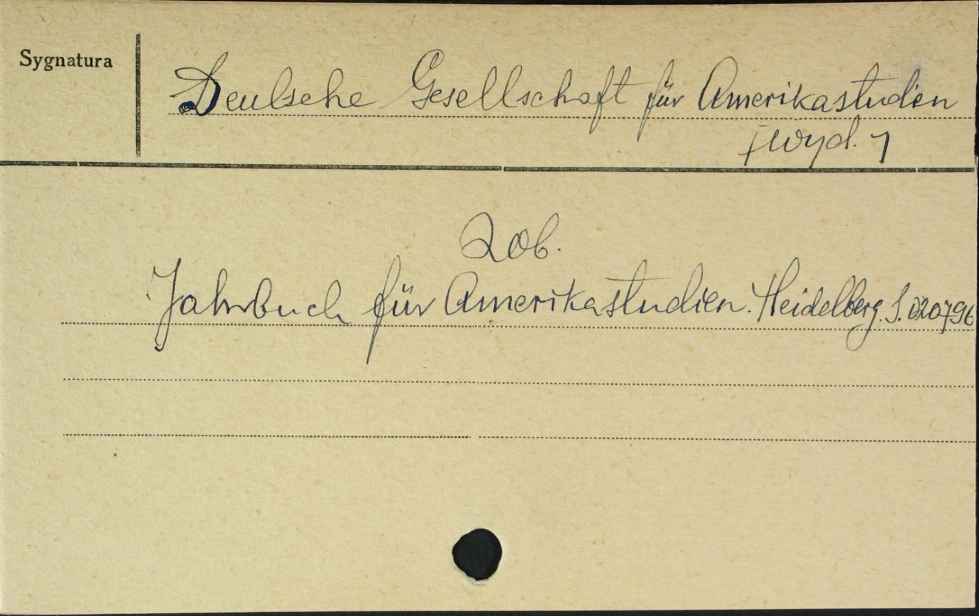 Sygnatura
Deutsche Gesellschaft für Amerikastudien
[wyd.]
Zob.
Jahrbuch für Amerikastudien. Heidelberg. S. 020796